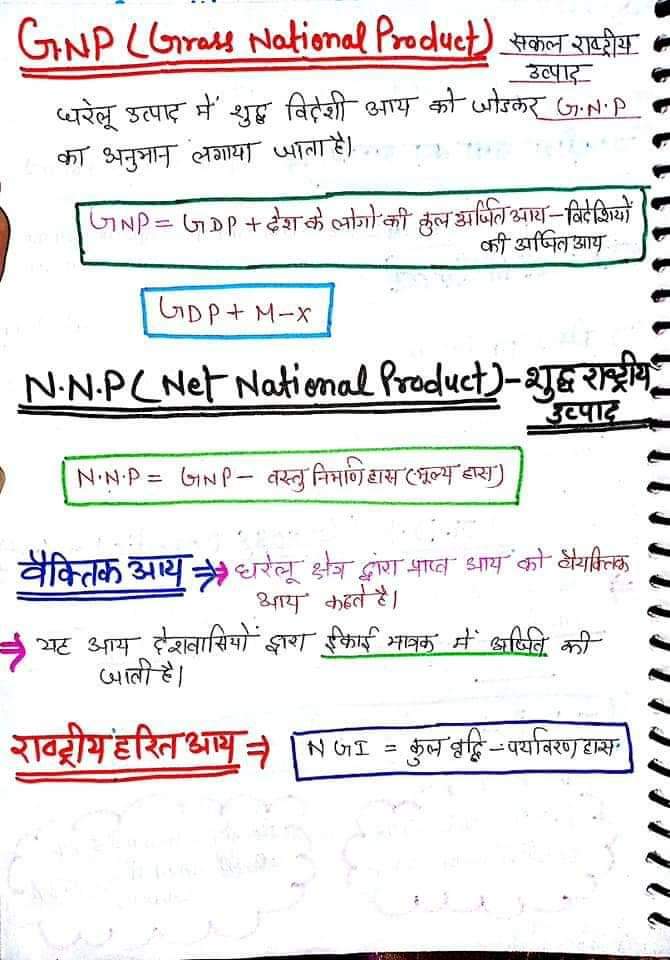 G.N.P (Grass National Product) सकल राष्ट्रीय
उत्पाद
घरेलू उत्पाद में शुद्ध विदेशी आय को जोडकर G.N.P
का अनुमान लगाया जाता है।
GNP = GDP + देश के लोगो की कुल अर्जित आय - विदेशियों
की अर्जित आय
GDP + M - X
N.N.P (Net National Product) - शुद्ध राष्ट्रीय
उत्पाद
N.N.P = GNP - वस्तु निर्माण हास (मूल्य हास)
वैक्तिक आय ⇒ घरेलू क्षेत्र द्वारा प्राप्त आय को वैयक्तिक
आय कहते है।
⇒ यह आय देशवासियों द्वारा ईकाई मात्रक में अर्जित की
जाती है।
राष्ट्रीय हरित आय ⇒ NGI = कुल वृद्धि - पर्यावरण हास